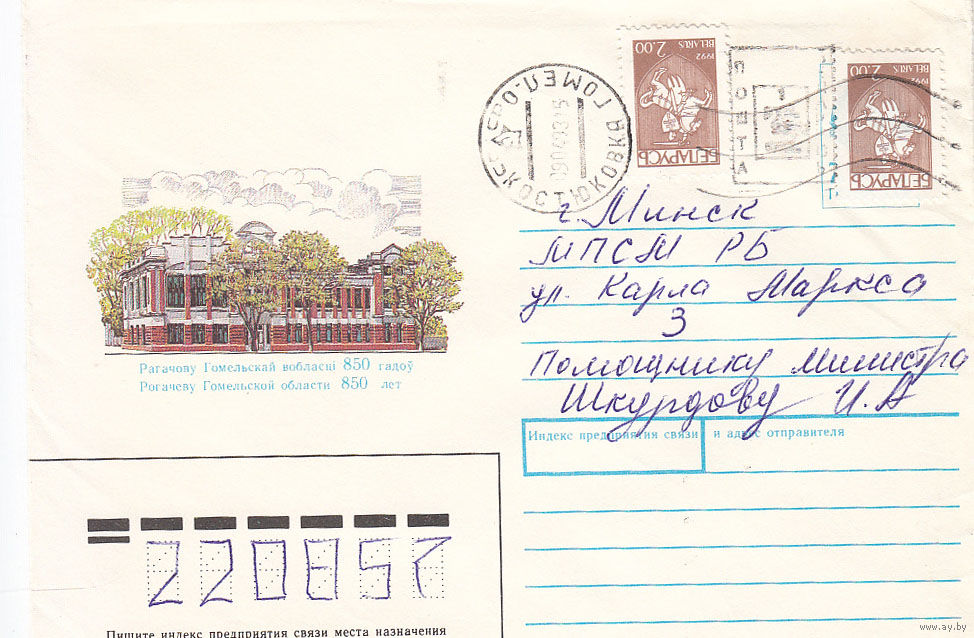 БЕЛАРУСЬ
1992 BELARUS 2.00
ПОШТА
БЕЛАРУСЬ
1992 BELARUS 2.00
КОСТЮКОВКА ГОМЕЛ. О.
г. Минск
МПСМ РБ
ул. Карла Маркса
3
Помощнику Министра
Шкурдову И. А
Рагачову Гомельскай вобласці 850 гадоў
Рогачеву Гомельской области 850 лет
Индекс предприятия связи и адрес отправителя
Пишите индекс предприятия связи места назначения
www.ay.by